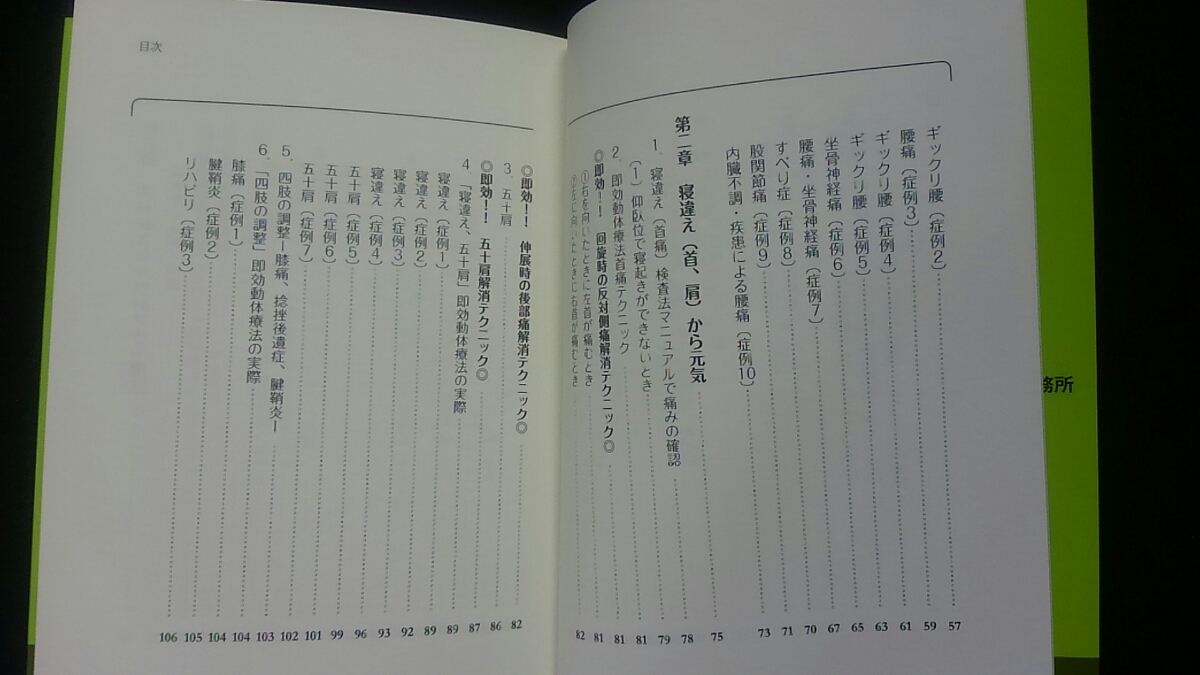 ギックリ腰（症例2） 57
腰痛（症例3） 59
ギックリ腰（症例4） 61
ギックリ腰（症例5） 63
坐骨神経痛（症例6） 65
腰痛・坐骨神経痛（症例7） 67
すべり症（症例8） 70
股関節痛（症例9） 71
内臓不調・疾患による腰痛（症例10） 73
第二章 寝違え（首、肩）から元気 75
1．寝違え（首痛）検査法マニュアルで痛みの確認 78
（1）仰臥位で寝起きができないとき 79
2．即効動体療法首痛テクニック 81
◎即効！！ 回旋時の反対側痛解消テクニック◎ 81
①右を向いたときに左首が痛むとき 81
②左に向いたときに右首が痛むとき 82
目次
◎即効！！ 伸展時の後部痛解消テクニック◎ 82
3．五十肩 86
◎即効！！ 五十肩解消テクニック◎ 87
4．「寝違え、五十肩」即効動体療法の実際 89
寝違え（症例1） 89
寝違え（症例2） 92
寝違え（症例3） 93
寝違え（症例4） 96
五十肩（症例5） 99
五十肩（症例6） 101
五十肩（症例7） 102
5．四肢の調整ー膝痛、捻挫後遺症、腱鞘炎ー 103
6．「四肢の調整」即効動体療法の実際 104
膝痛（症例1） 104
腱鞘炎（症例2） 105
リハビリ（症例3） 106
務所